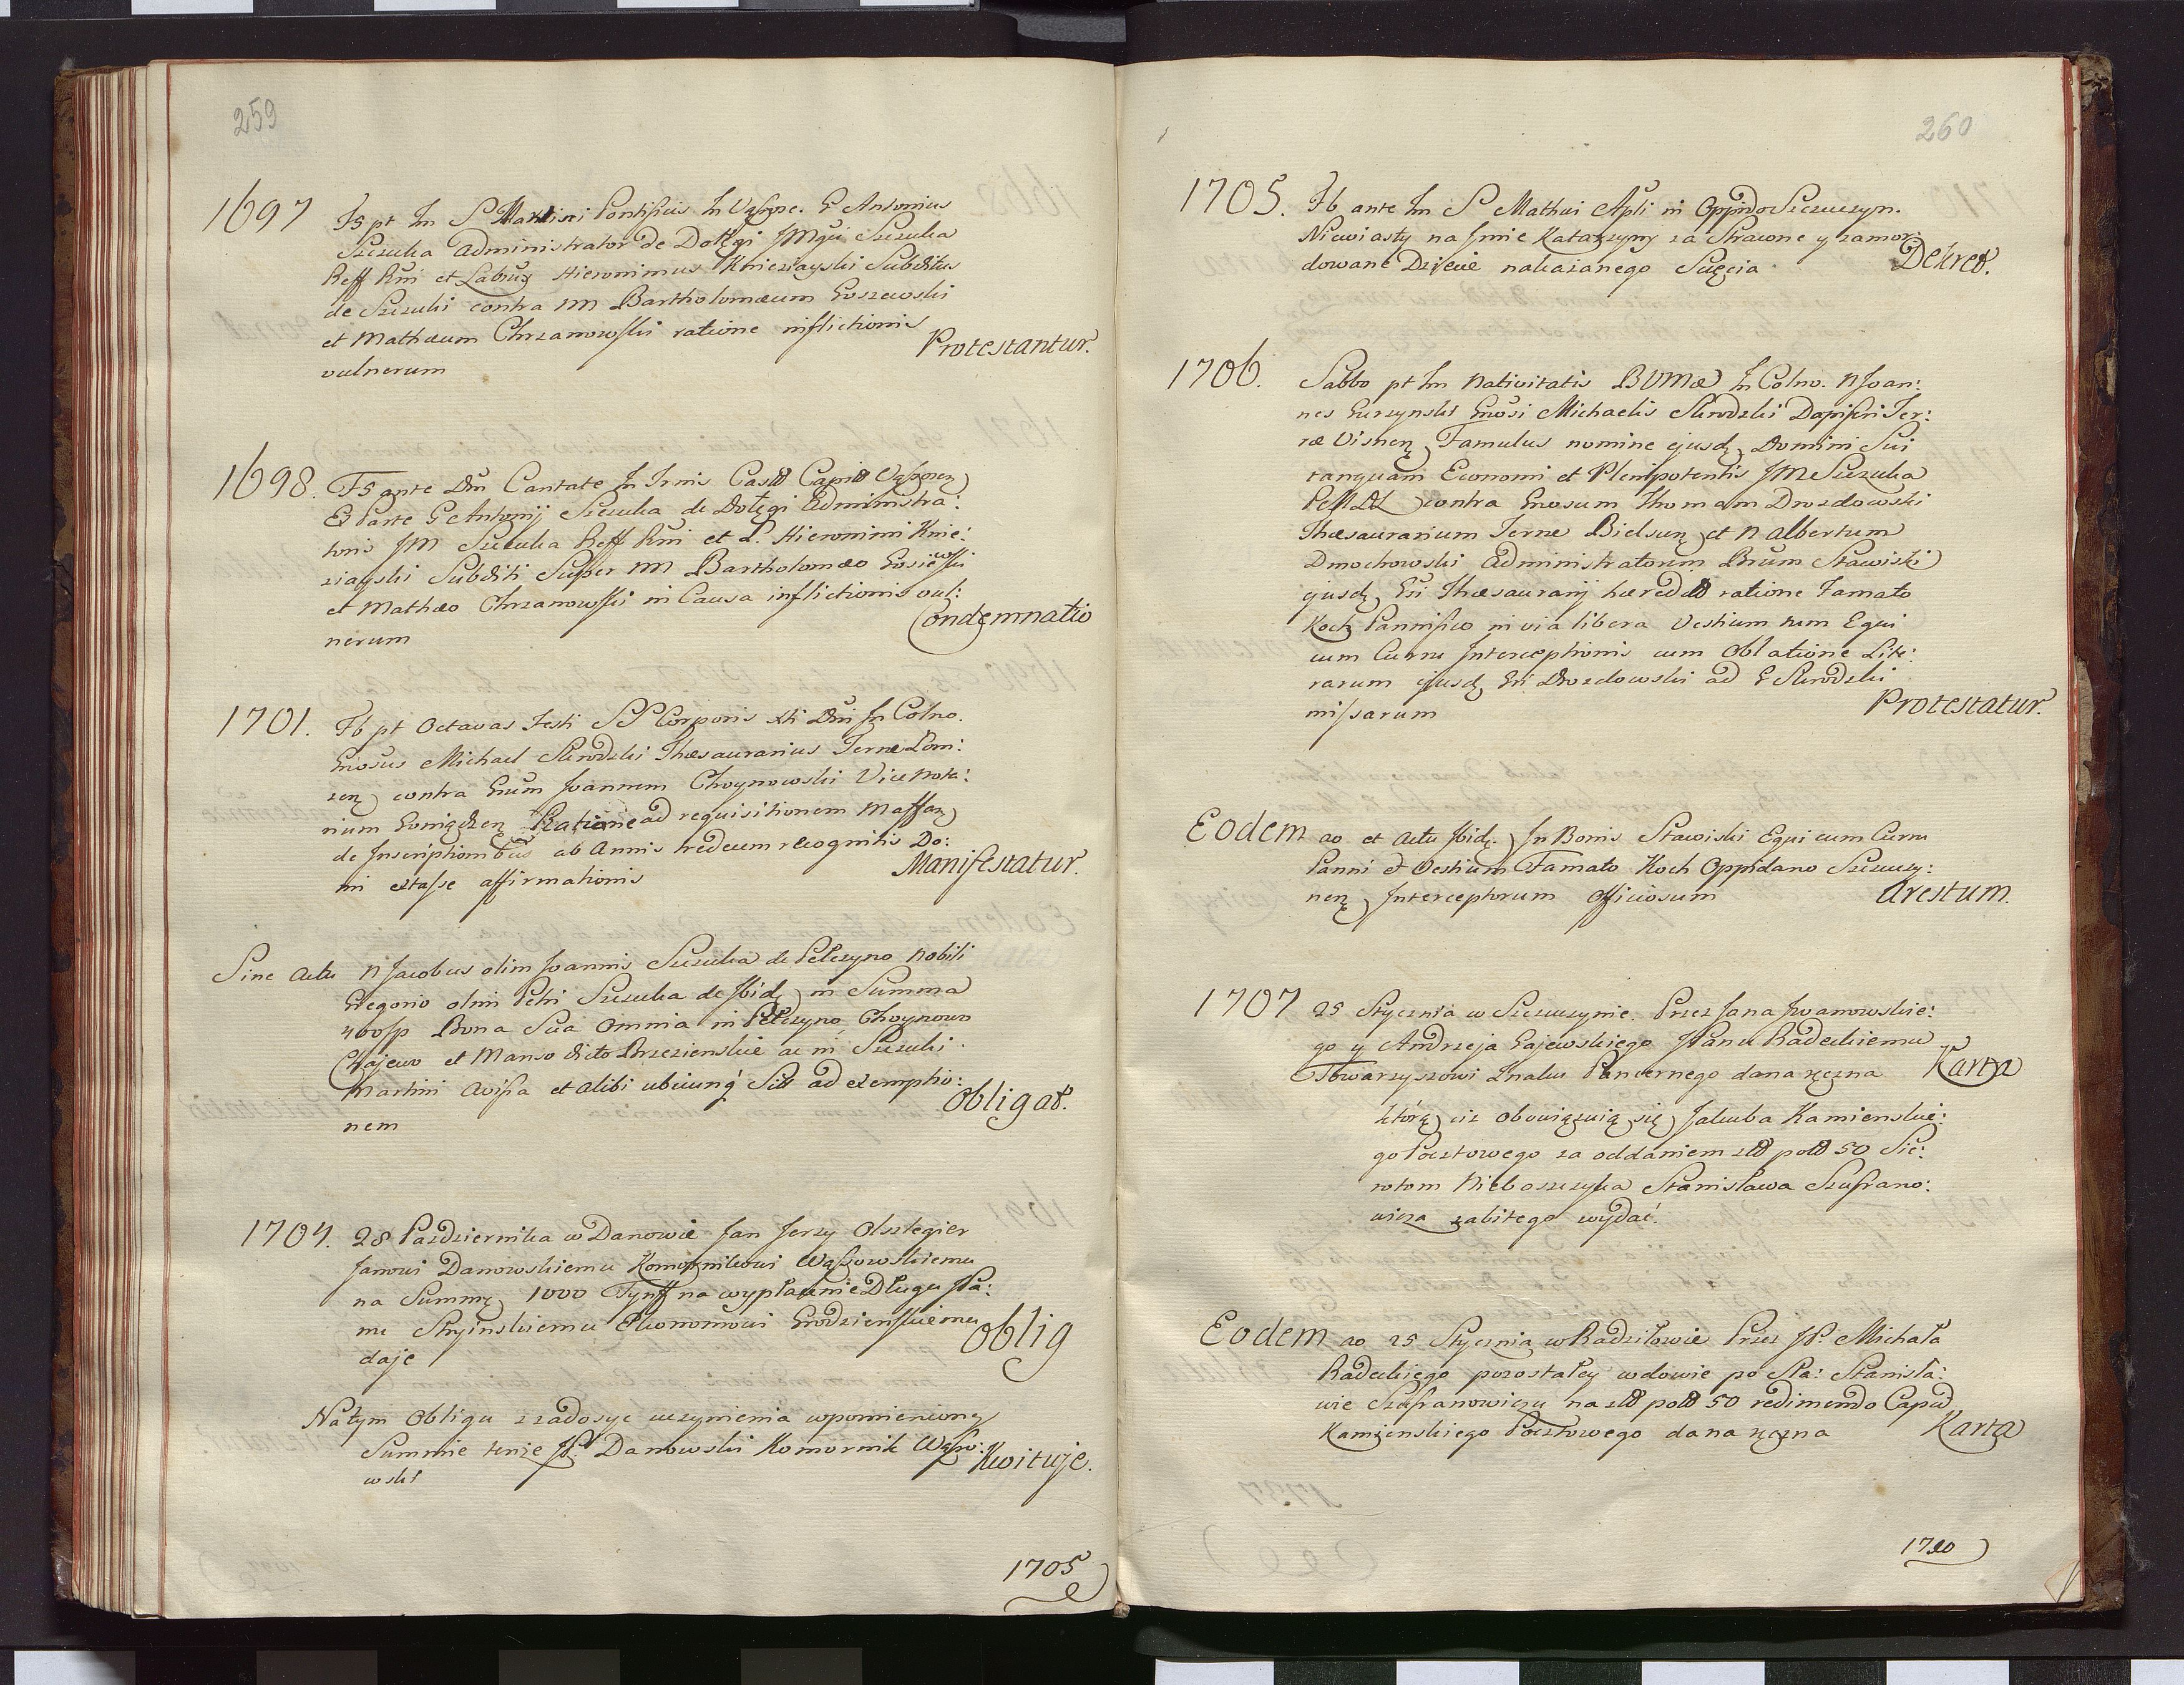 259
1697 F5 pt Fm S Martini Pontificis In Vąsosz. G Antonius
Szczuka Administrator de Dołęgi JMgci Szczuka
Reff Rni et Labrűs Hieronimus Knieziayski Subditus
de Szczuki contra NN Bartholomæum Goszewski
et Mathæum Chrzanowski ratione inflictionis
vulnerum
Protestantur.
1698. F5 ante Dm Cantate In Trnis Cast Capit
Ex Parte G Antonij Szczuka de Dołęgi Administra:
toris JM Szczuka Reff Rni et L. Hieronimi Knie:
ziayski Subditi Super NN Bartholomæo Gosiewski
et Mathæo Chrzanowski in Causa inflictionis vul:
nerum
Condemnatio
1701. F6 pt Octavas Festi SS Corporis Xti Dni In Colno.
Gnosus Michael Skrodzki Thæsaurarius Terræ Łom:
zeń contra Gnum Joannem Choynowski Vice Nota:
rium Goniądzeń Ratione ad requisitionem
de Inscriptionibus ab Annis tredecim recognitis Do:
mi extasse affirmationis
Manifestatur.
Sine Actu N Jacobus olim Joannis Szczuka de Pełczyno Nobili
Gregorio olim Petri Szczuka de Ibid in Summa
400 fp Bona Sua Omnia in Pełczyno Choynowo
Czajewo et Manso dicto Brzezienskie ac in Szczuki
Martini Avissa et alibi ubicunq Sita ad exemptio:
nem
Obligat.
1704. 28 Pazdziernika w Danowie Jan Jerzy Olsztegier
Janowi Danowskiemu Komornikowi Wąsowskiemu
na Summę 1000 Tynff na wypłacenie Długu JPa:
nu Stryinskiemu Ekonomowi Grodzienskiemu
daje
Oblig
Na tym Obligu z zadosyc uczynienia wpomienioney
Summie tenze JP. Danowski Komornik Wąso:
wski
Kwituje.
1705
260
1705. F6 ante Fm S Mathæi Apli in Oppido Szczuczyn.
Niewiasty na Jmie Katarzyny za Stracone y zamor:
dowane Dziecie nakazanego Scięcia
Dekret.
1706. Sabbo pt Fm Nativitatis BVMæ In Colno. N Joan:
nes Gurzynski Gnosi Michaelis Skrodzki Dapiferi Ter:
ræ Visnen Famulus nomine ejusd Domini Sui
tanquam Economi et Plenipotentis JM Szczuka
contra Gnosum Thomam Drozdowski
Thæsaurarium Terræ Bielscen et N Albertum
Dmochowski Administratorum Bnum Stawiski
ejusd Gn Thæsaurarij hæred ratione Famato
Koch Pannifico in via libera Vestium tum Equi
cum Curru Interceptionis cum Oblatione Lite:
rarum ejusd Gn Drozdowski ad G Skrodzki
missarum
Protestatur.
Eodem ao et Actu Ibid. In Bonis Stawiski Equi cum Curru
Panni et Vestium Famato Koch Oppidano Szczuczy:
neń Interceptorum Officiosum
Arestum.
1707 25 Stycznia w Szczuczynie. Przez Jana Jwanowskie:
go y Andrzeja Gajewskiego JPanu Radeckiemu
Towarzyszowi Znaku Pancernego dana ręczna
Karta
którą ciz obowiązuią się Jakuba Kamienskie:
go Pocztowego za oddaniem złł poll 50 Sie:
rotom Nieboszczyka Stanisława Szafrano:
wicza zabitego wydać.
Eodem ao 25 Stycznia w Radziłowie Przez JP. Michała
Radeckiego pozostałey wdowie po Sta: Stanisła:
wie Szafranowiczu na złł poll 50 redimendo Caput
Kamienskiego Pocztowego dana ręczna
Karta
1710